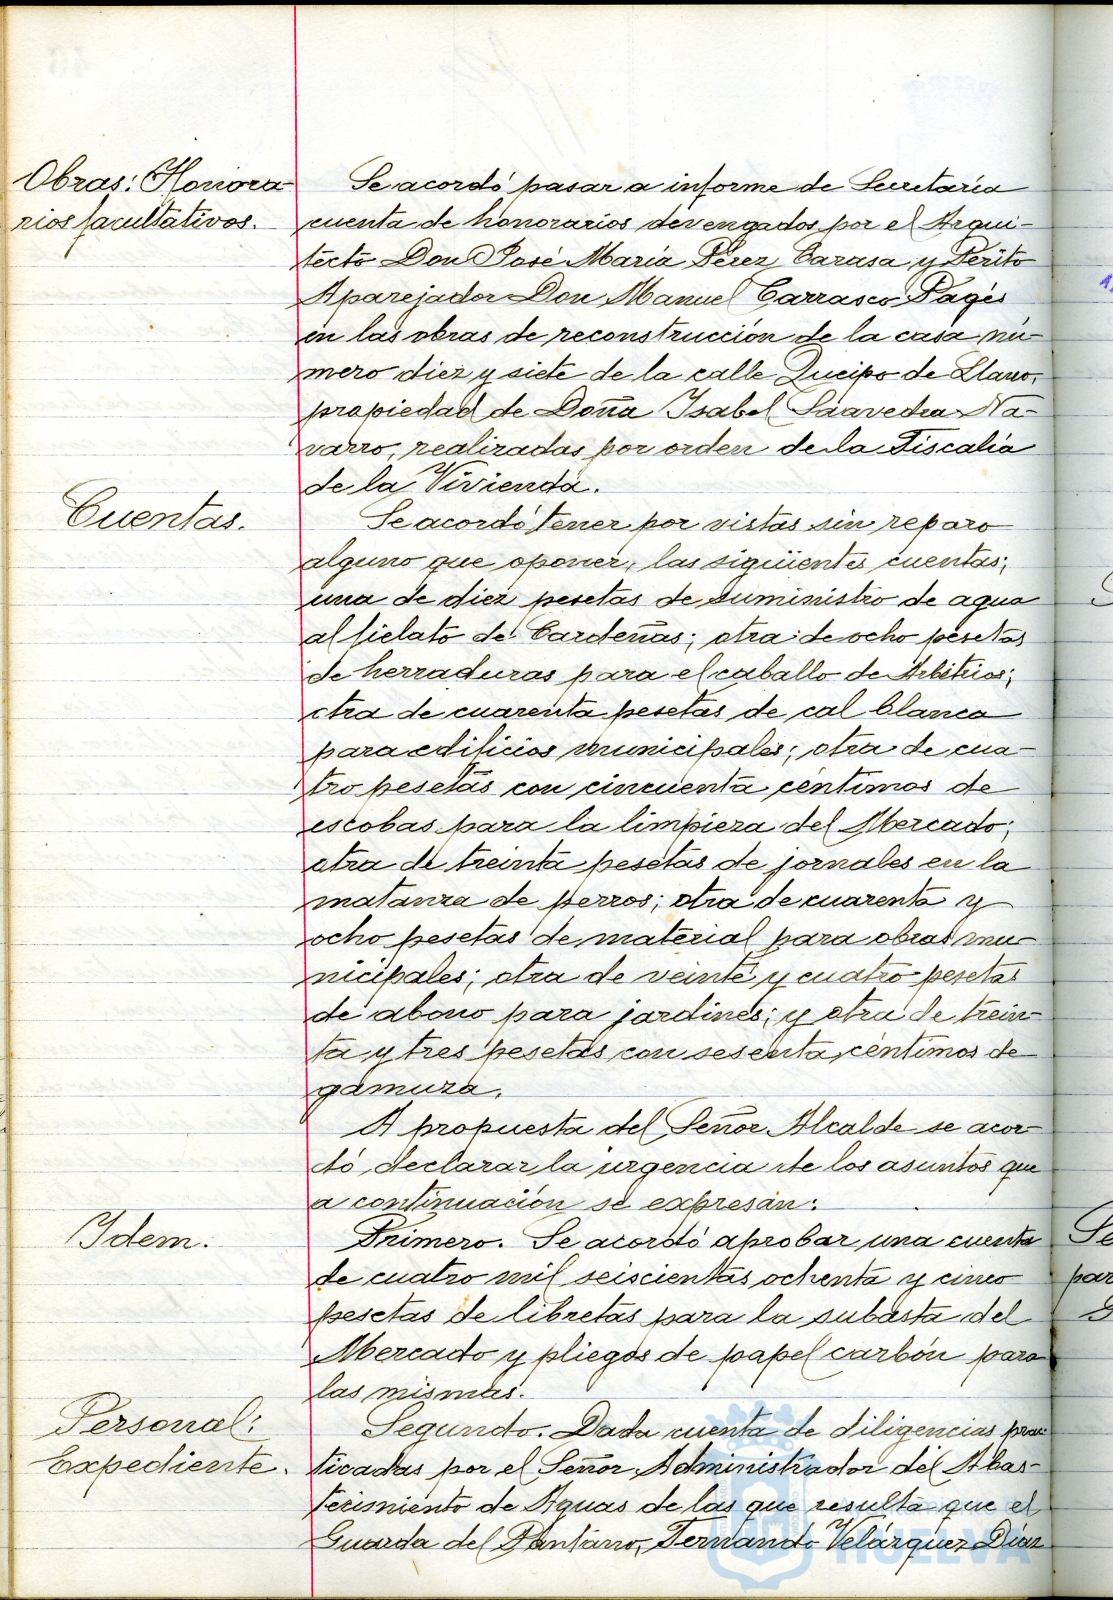 Obras: Honora-
rios facultativos.
Se acordó pasar a informe de Secretaría
cuenta de honorarios devengados por el Arqui-
tecto Don José María Pérez Carasa y Perito
Aparejador Don Manuel Carrasco Pagés
en las obras de reconstrucción de la casa nú-
mero diez y siete de la calle Queipo de Llano,
propiedad de Doña Isabel Saavedra Na-
varro, realizadas por orden de la Fiscalía
de la Vivienda.
Cuentas.
Se acordó tener por vistas sin reparo
alguno que oponer, las siguientes cuentas;
una de diez pesetas de suministro de agua
al fielato de Cardeñas; otra de ocho pesetas
de herraduras para el caballo de Arbitrios;
otra de cuarenta pesetas de cal blanca
para edificios municipales; otra de cua-
tro pesetas con cincuenta céntimos de
escobas para la limpieza del Mercado;
otra de treinta pesetas de jornales en la
matanza de perros; otra de cuarenta y
ocho pesetas de material para obras mu-
nicipales; otra de veinte y cuatro pesetas
de abono para jardines; y otra de trein-
ta y tres pesetas con sesenta céntimos de
gamuza.
A propuesta del Señor Alcalde se acor-
dó declarar la urgencia de los asuntos que
a continuación se expresan:
Idem.
Primero. Se acordó aprobar una cuenta
de cuatro mil seiscientas ochenta y cinco
pesetas de libretas para la subasta del
Mercado y pliegos de papel carbón para
las mismas.
Personal:
Expediente.
Segundo. Dada cuenta de diligencias prac-
ticadas por el Señor Administrador del Abas-
tecimiento de Aguas de las que resulta que el
Guarda del Pantano, Fernando Velázquez Díaz
HUELVA